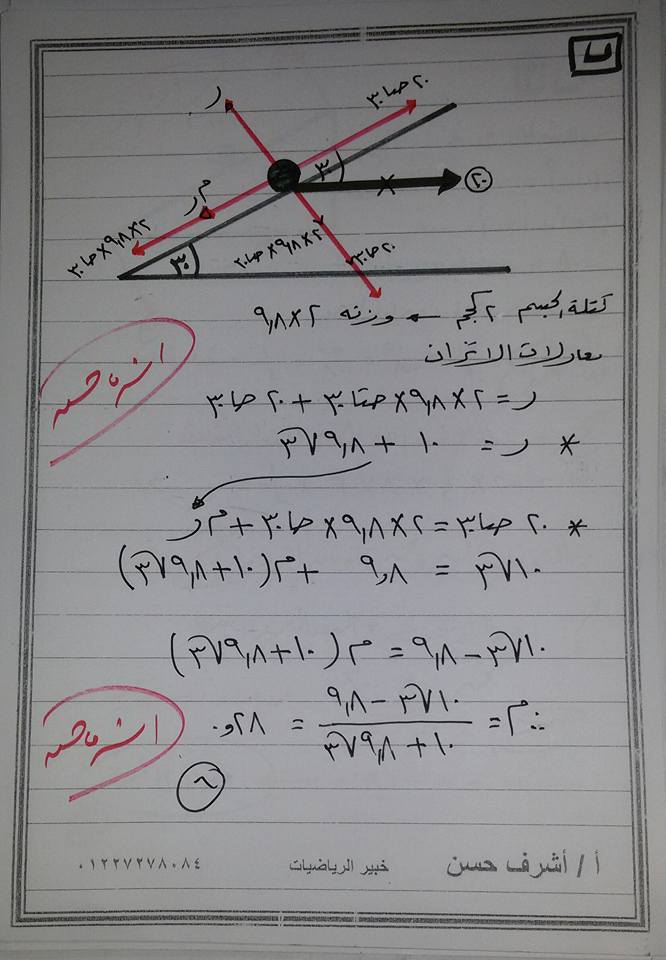 ر
٢٠ حتا٣٠
٣٠
٢٠
م ر
٢×٩,٨×حا٣٠
٣٠
٢×٩,٨×حتا٣٠
٢٠ حا٣٠
كتلة الجسم ٢ كجم ← وزنه ٢×٩,٨
معادلات الاتزان
ر = ٢×٩,٨×حتا٣٠ + ٢٠ حا٣٠
* ر = ١٠ + ٩,٨√٣
* ٢٠ حتا٣٠ = ٢×٩,٨×حا٣٠ + م ر
١٠√٣ = ٩,٨ + م(١٠+٩,٨√٣)
١٠√٣ − ٩,٨ = م (١٠+٩,٨√٣)
∴ م = (١٠√٣ − ٩,٨) / (١٠ + ٩,٨√٣) = ٠,٢٨
اشرف حسن
اشرف حسن
٦
أ / أشرف حسن خبير الرياضيات ٠١٢٢٧٢٧٨٠٨٤